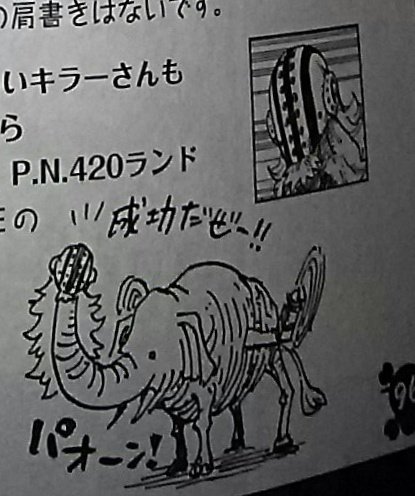 の肩書きはないです。
いキラーさんも
ら
P.N.420ランド
の
成功だぜ〜!!
パオーン!